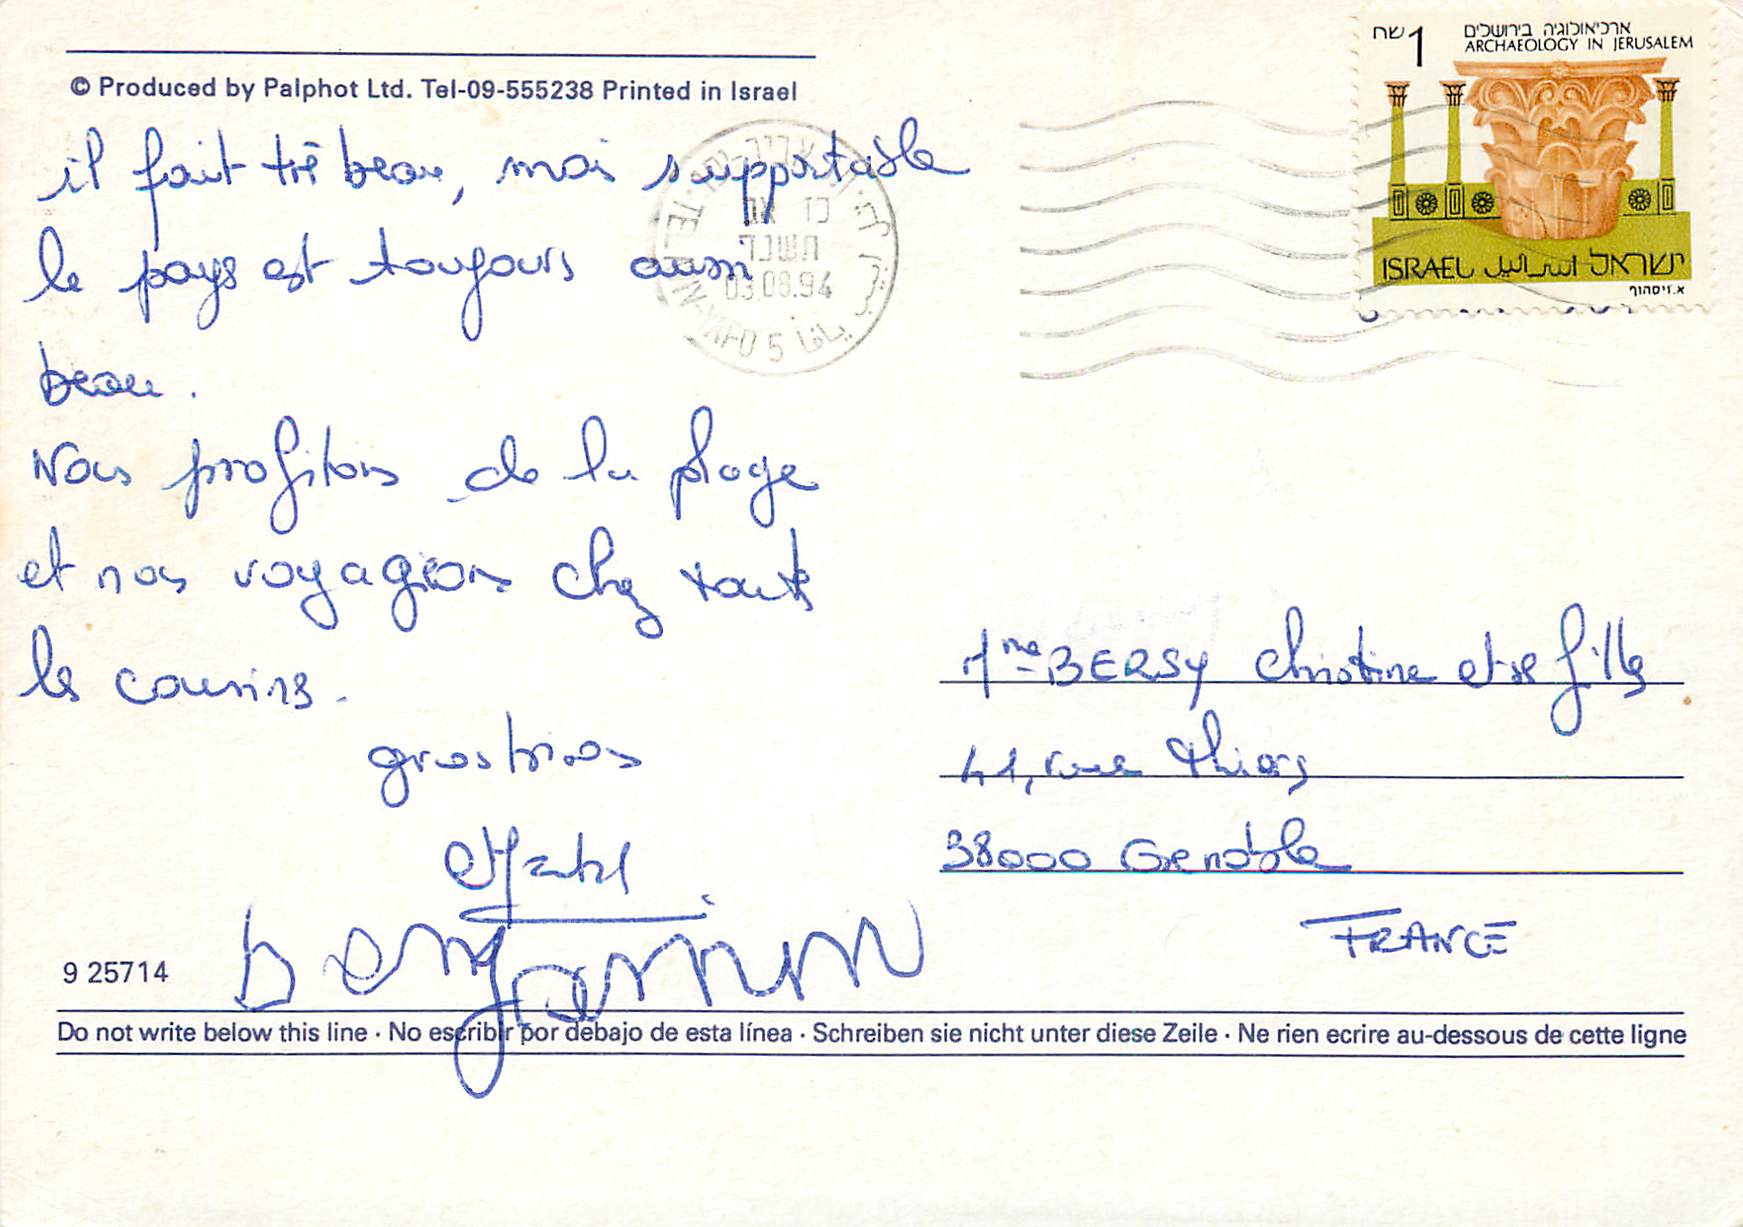 © Produced by Palphot Ltd. Tel-09-555238 Printed in Israel
1 שח
ארכיאולוגיה בירושלים
ARCHAEOLOGY IN JERUSALEM
ISRAEL اسرائيل ישראל
א. זיסהוף
תשנד
03.08.94
TEL AVIV-YAFO 5 يافا
il fait très beau, mais supportable
le pays est toujours aussi
beau.
Nous profitons de la plage
et nous voyageons chez touts
les cousins.
gros bisous
benjamin
Mme BERSY Christine et ses filles
41, rue Thiers
38000 Grenoble
FRANCE
9 25714
Do not write below this line · No escribir por debajo de esta línea · Schreiben sie nicht unter diese Zeile · Ne rien ecrire au-dessous de cette ligne